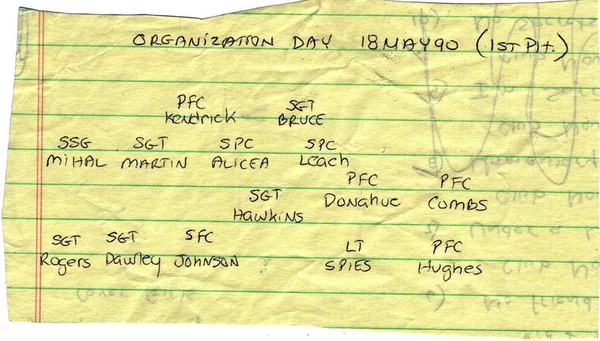 ORGANIZATION DAY 18 MAY 90 (1ST Plt.)
PFC SGT
Kendrick BRUCE
SSG SGT SPC SPC
MIHAL MARTIN ALICEA Leach
SGT PFC PFC
HAWKINS Donahue COMBS
SGT SGT SFC LT PFC
Rogers Dawley JOHNSON SPIES Hughes